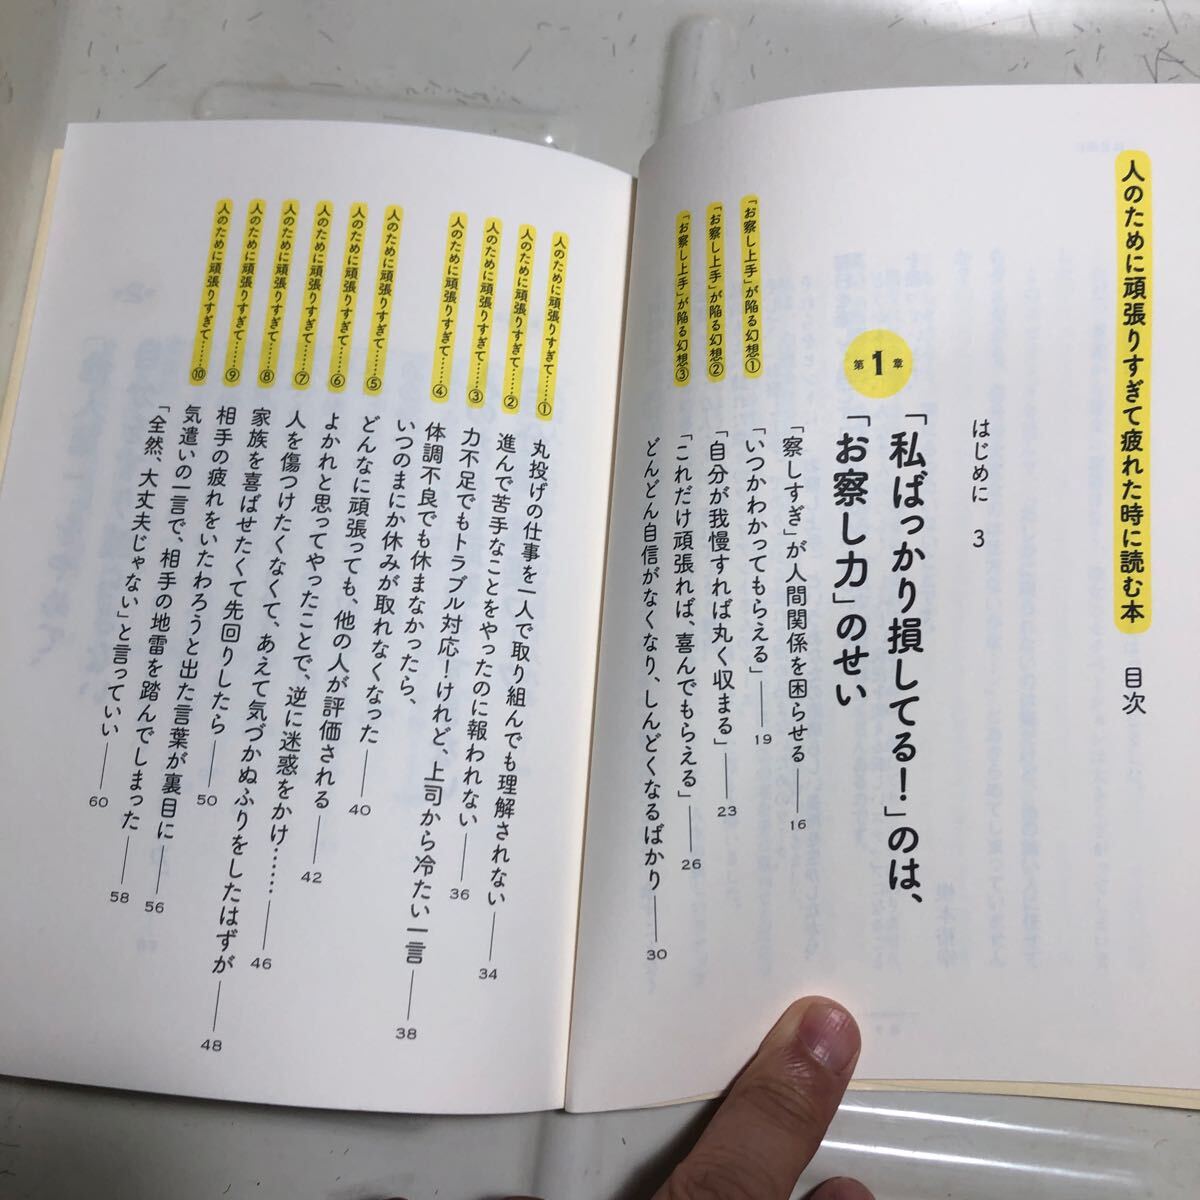 人のために頑張りすぎて疲れた時に読む本 目次
はじめに 3
第1章
「私ばっかり損してる！」のは、
「お察し力」のせい
「察しすぎ」が人間関係を困らせる 16
「お察し上手」が陥る幻想① 「いつかわかってもらえる」 19
「お察し上手」が陥る幻想② 「自分が我慢すれば丸く収まる」 23
「お察し上手」が陥る幻想③ 「これだけ頑張れば、喜んでもらえる」 26
どんどん自信がなくなり、しんどくなるばかり 30
人のために頑張りすぎて……① 丸投げの仕事を一人で取り組んでも理解されない 34
人のために頑張りすぎて……② 進んで苦手なことをやったのに報われない 36
人のために頑張りすぎて……③ 力不足でもトラブル対応！けれど、上司から冷たい一言 38
人のために頑張りすぎて……④ 体調不良でも休まなかったら、
いつのまにか休みが取れなくなった 40
人のために頑張りすぎて……⑤ どんなに頑張っても、他の人が評価される 42
人のために頑張りすぎて……⑥ よかれと思ってやったことで、逆に迷惑をかけ…… 46
人のために頑張りすぎて……⑦ 人を傷つけたくなくて、あえて気づかぬふりをしたはずが 48
人のために頑張りすぎて……⑧ 家族を喜ばせたくて先回りしたら 50
人のために頑張りすぎて……⑨ 相手の疲れをいたわろうと出た言葉が裏目に 56
人のために頑張りすぎて……⑩ 気遣いの一言で、相手の地雷を踏んでしまった 58
「全然、大丈夫じゃない」と言っていい 60